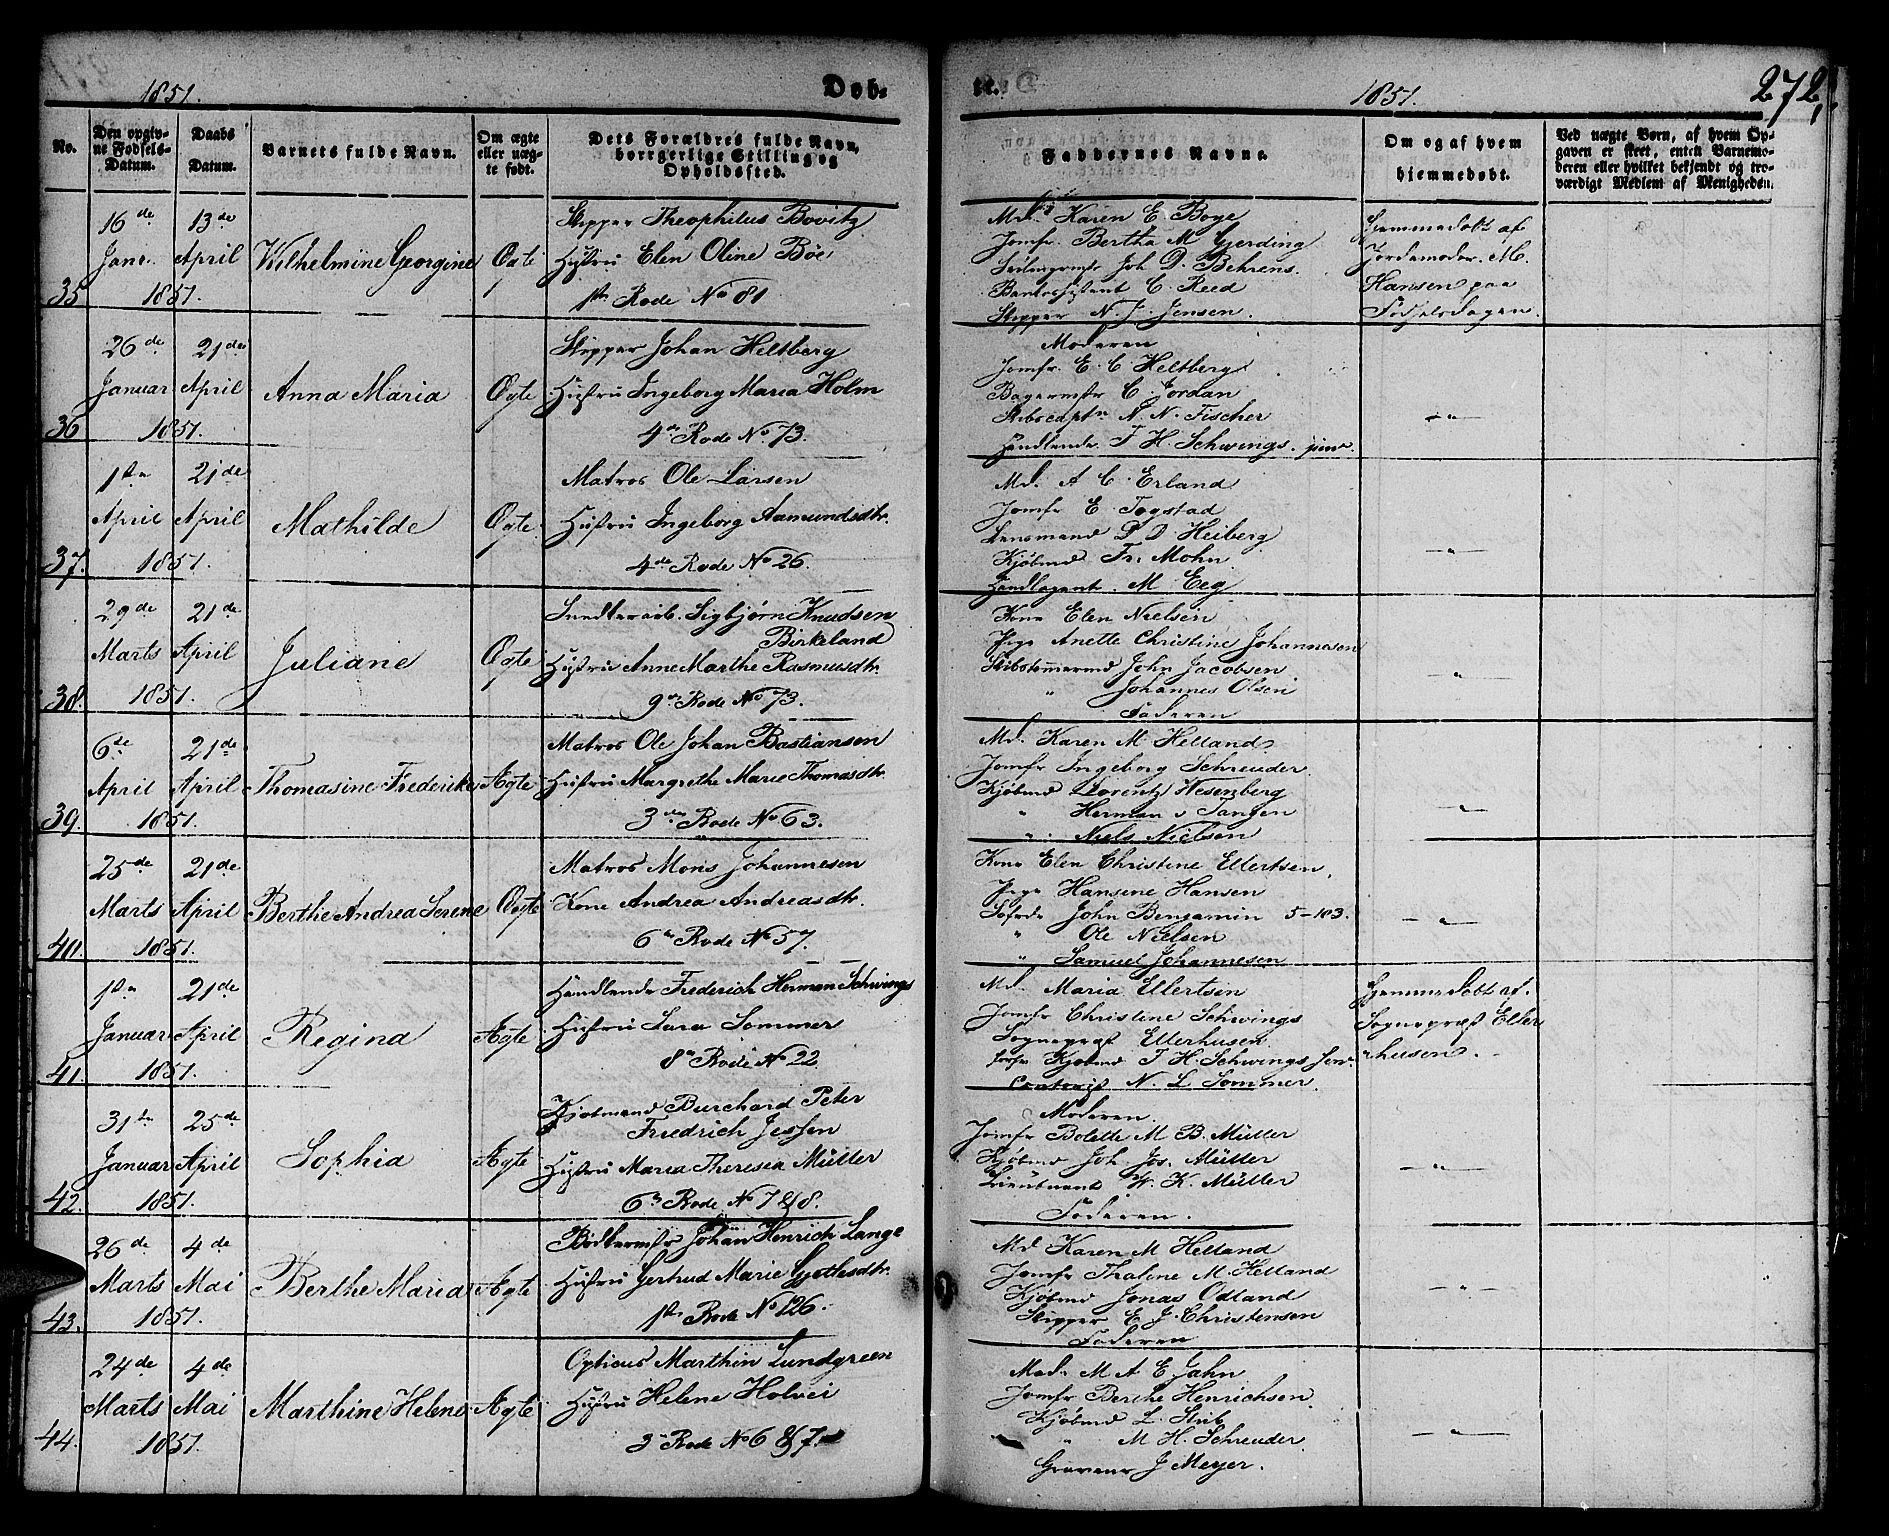 1851.
Døb-
te.
1851.
272,
No.
Den opgiv-
ne Fødsels-
Datum.
Daabs
Datum.
Barnets fulde Navn.
Om ægte
eller uæg-
te født.
Dets Forældres fulde Navn,
borgerlige Stilling og
Opholdssted.
Faddernes Navne.
Om og af hvem
hjemmedøbt.
Ved uægte Børn, af hvem Op-
gaven er skeet, enten Barnemo-
deren eller hvilket bekjendt og tro-
værdigt Medlem af Menigheden.
35
16de Janr. 1851.
13de April
Wilhelmine Georgine
Ægte
Skipper Theophilus Bovitz
Hustru Elen Oline Böe
1ste Rode No 81
Md. Karen E. Boge
Jomfr. Bertha M Gjerding
Joh D. Behrens.
C. Reed
Skipper N. J. Jensen.
Hjemmedøbt af
Jordemoder M.
Hansen paa
Fødselsdagen.
36
26de Januar 1851.
21de April
Anna Maria
Ægte
Skipper Johan Heltberg
Hustru Ingeborg Maria Holm
4de Rode No 73.
Moderen
Jomfr. E. C Heltberg
Bagermstr C. Jordan
Skibscaptn N. N. Fischer
Handlende T. H. Schwings. junr.
- " -
37.
1ste April 1851.
21de April
Mathilde
Ægte
Matros Ole Larsen
Hustru Ingeborg Aamundsdtr.
4de Rode No 26.
Md. A C. Erland
Jomfr E. Togstad
Lensmand D D Heiberg
Kjøbmd Fr. Mohn
Handlagent. M Eeg
- " -
38.
29de Marts 1851.
21de April
Juliane
Ægte
Sigbjørn Knudsen
Birkeland
Hustru Anne Marthe Rasmusdtr.
9de Rode No 73.
Kone Elen Nielsen
Pige Anette Christine Johannesen
Skibstømmermd John Jacobsen
" Johannes Olsen
Faderen
"
39.
6de April 1851.
21de April
Thomasine Frederike
Ægte
Matros Ole Johan Bastiansen
Hustru Margrethe Marie Thomasdtr.
3die Rode No 63.
Md. Karen M. Helland.
Jomfr Ingeborg Schreuder.
Kjøbmd Lorentz Wesenberg
" Herman v Tangen
" Niels Nielsen
- " -
40.
25de Marts 1851.
21de April
Berthe Andrea Serene
Ægte
Matros Mons Johannesen
Kone Andrea Andreasdtr.
6te Rode No 57.
Kone Elen Christine Ellertsen.
Pige Hansine Hansen
John Benjamin 5-103.
" Ole Nielsen
" Samuel Johannesen
- " -
41.
1ste Januar 1851.
21de April
Regina
Ægte
Handlende Frederich Herman Schwings
Hustru Sara Sommer
8de Rode No 22
Md. Maria Ellertsen
Jomfr Christine Schwings
Sognepræst Ellerhusen.
Kjøbmd T. H. Schwings Senr.
N. L Sommer.
Hjemmedøbt af.
Sognepræst Eller
husen.
42.
31te Januar 1851.
25de April
Sophia
Ægte
Kjøbmand Burchard Peter
Friedrich Jessen
Hustru Maria Theresia Müller
6te Rode No 7 & 8.
Moderen.
Jomfr Bolette M B. Müller
Kjøbmd Joh Jos. Müller
Lieutnant W. K. Müller
Faderen.
- " -
43.
26de Marts 1851.
4de Mai
Berthe Maria
Ægte
Bødkermstr Johan Henrich Lange
Hustru Gertrud Marie Gjethesdtr.
1ste Rode No 126.
Md. Karen M Helland
Jomfr Thaline M. Helland
Kjøbmd Jonas Odland
Skipper E J. Christensen
Faderen
- " -
44.
24de Marts 1851.
4de Mai
Marthine Helene
Ægte
Opticus Marthin Lundgreen
Hustru Helene Holvei
3die Rode No 6 & 7.
Mad. M A E Jahn
Jomfr Berthe Henrichsen.
Kjøbmd L. Stub
" M H. Schreuder.
Graveur J Meyer.
- " -